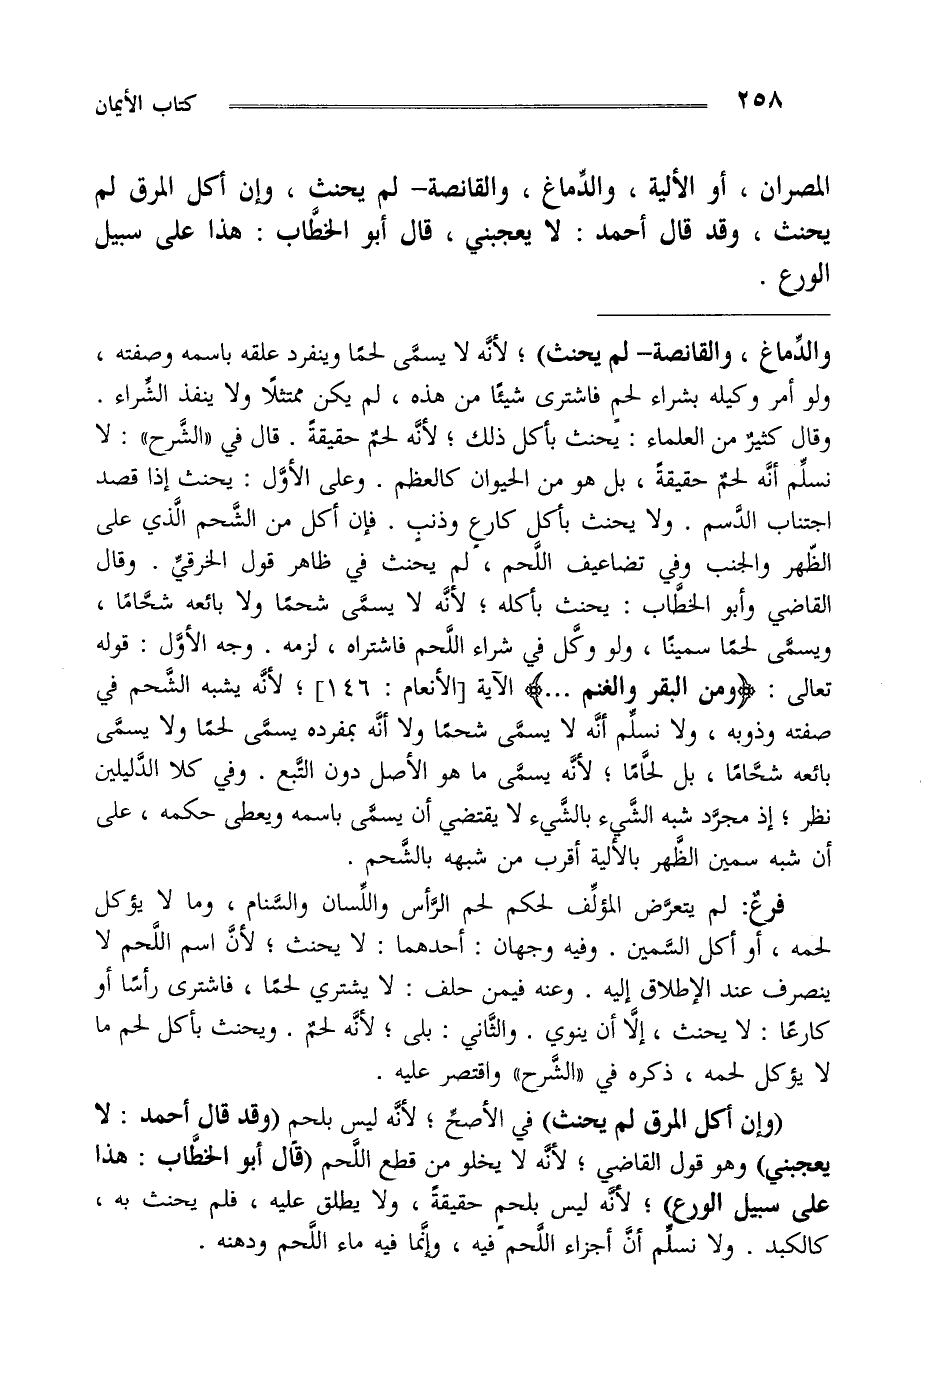 ٢٥٨ كتاب الأيمان
المصران ، أو الألية ، والدِّماغ ، والقانصة– لم يحنث ، وإن أكل المرق لم
يحنث ، وقد قال أحمد : لا يعجبني ، قال أبو الخطَّاب : هذا على سبيل
الورع .
والدِّماغ ، والقانصة– لم يحنث) ؛ لأنَّه لا يسمَّى لحمًا وينفرد علقه باسمه وصفته ،
ولو أمر وكيله بشراء لحم فاشترى شيئًا من هذه ، لم يكن ممتثلًا ولا ينفذ الشِّراء .
وقال كثيرٌ من العلماء : يحنث بأكل ذلك ؛ لأنَّه لحمٌ حقيقةً . قال في «الشَّرح» : لا
نسلِّم أنَّه لحمٌ حقيقةً ، بل هو من الحيوان كالعظم . وعلى الأوَّل : يحنث إذا قصد
اجتناب الدَّسم . ولا يحنث بأكل كارعٍ وذنبٍ . فإن أكل من الشَّحم الَّذي على
الظّهر والجنب وفي تضاعيف اللَّحم ، لم يحنث في ظاهر قول الخرقيِّ . وقال
القاضي وأبو الخطَّاب : يحنث بأكله ؛ لأنَّه لا يسمَّى شحمًا ولا بائعه شحَّامًا ،
ويسمَّى لحمًا سمينًا ، ولو وكَّل في شراء اللَّحم فاشتراه ، لزمه . وجه الأوَّل : قوله
تعالى : ﴿ومن البقر والغنم ...﴾ الآية [الأنعام : ١٤٦] ؛ لأنَّه يشبه الشَّحم في
صفته وذوبه ، ولا نسلِّم أنَّه لا يسمَّى شحمًا ولا أنَّه بمفرده يسمَّى لحمًا ولا يسمَّى
بائعه شحَّامًا ، بل لحَّامًا ؛ لأنَّه يسمَّى ما هو الأصل دون التَّبع . وفي كلا الدَّليلين
نظر ؛ إذ مجرَّد شبه الشَّيء بالشَّيء لا يقتضي أن يسمَّى باسمه ويعطى حكمه ، على
أن شبه سمين الظَّهر بالألية أقرب من شبهه بالشَّحم .
فرعٌ: لم يتعرَّض المؤلِّف لحكم لحم الرَّأس واللِّسان والسَّنام ، وما لا يؤكل
لحمه ، أو أكل السَّمين . وفيه وجهان : أحدهما : لا يحنث ؛ لأنَّ اسم اللَّحم لا
ينصرف عند الإطلاق إليه . وعنه فيمن حلف : لا يشتري لحمًا ، فاشترى رأسًا أو
كارعًا : لا يحنث ، إلَّا أن ينوي . والثَّاني : بلى ؛ لأنَّه لحمٌ . ويحنث بأكل لحم ما
لا يؤكل لحمه ، ذكره في «الشَّرح» واقتصر عليه .
(وإن أكل المرق لم يحنث) في الأصحِّ ؛ لأنَّه ليس بلحم (وقد قال أحمد : لا
يعجبني) وهو قول القاضي ؛ لأنَّه لا يخلو من قطع اللَّحم (قال أبو الخطَّاب : هذا
على سبيل الورع) ؛ لأنَّه ليس بلحمٍ حقيقةً ، ولا يطلق عليه ، فلم يحنث به ،
كالكبد . ولا نسلِّم أنَّ أجزاء اللَّحم فيه ، وإنَّما فيه ماء اللَّحم ودهنه .